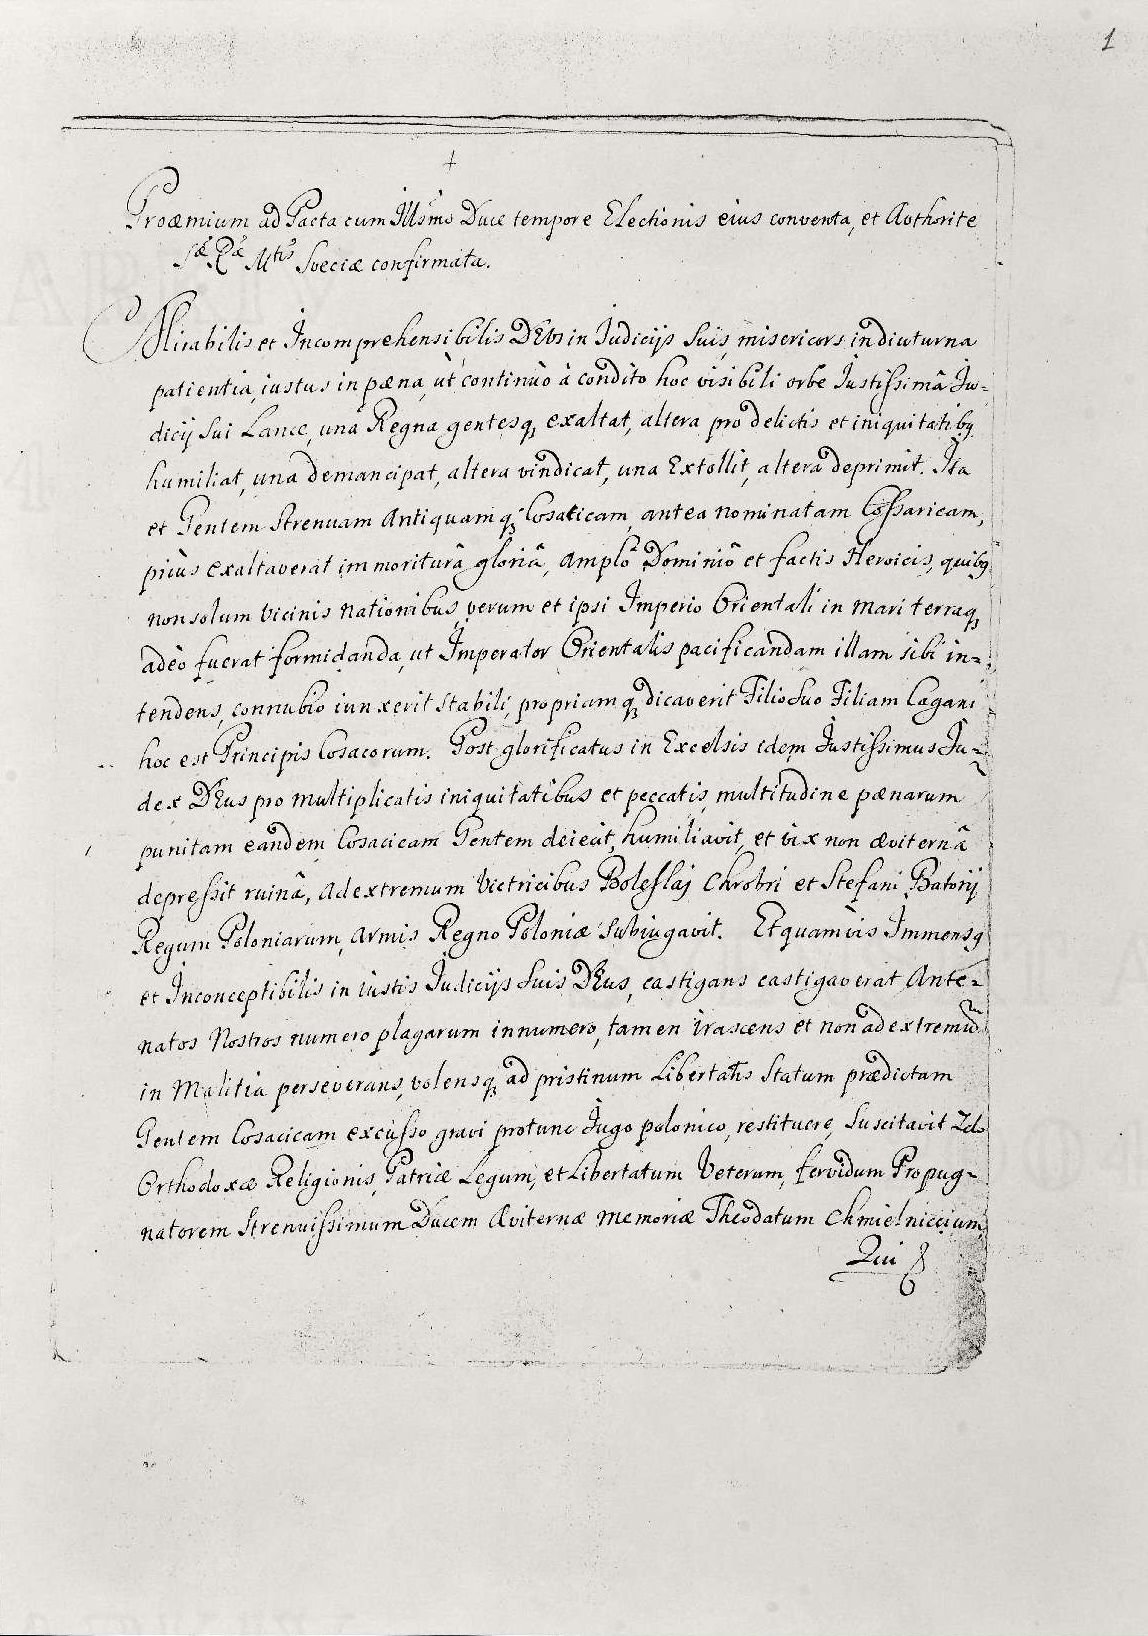 1
+
Proæmium ad Pacta cum Ill⁠s͂mo Duce tempore Electionis eius conventa, et Aũthorite
Sæ Ræ Mtis Sveciæ confirmata.
Mirabilis et Incomprehensibilis DEUs in Iudicijs Suis, misericors in diuturna
patientia, iustus in pæna, ùt continuò à condito hoc visibili orbe Iustissimâ Iu=
dicij sui Lance, unâ Regna gentesq, exaltat, altera pro delictis et iniquitatibq
humiliat, una demancipat, altera vindicat, una Extollit, altera deprimit. Ita
et Gentem strenuam Antiquam q, Cosaticam, antea nominatam Cossaricam,
priùs exaltaverat immoriturâ gloriâ, amplo Dominiô et factis Heroicis, quibq
non solum vicinis nationibus, verum et ipsi Imperio Orientali in mari terraq,
adeò fuerat formidanda, ut Imperator Orientalis pacificandam illam sibi in=
tendens, connubio iunxerit stabili, propriam q, dicaverit Filio Suo Filiam Cagani
hoc est Principis Cosacorum. Post glorificatus in Excelsis idem Iustissimus Iu=
dex DEus pro multiplicatis iniquitatibus et peccatis, multitudine pænarum
punitam eandem Cosacicam Gentem deiecit, humiliavit, et vix non æviternâ
depressit ruinâ, ad extremum Victricibus Boleslaj Chrobri et Stefani Batorij
Regum Poloniarum, armis Regno Poloniæ Subiugavit. Et quamvis Immensq
et Inconceptibilis in iustis Iudicijs Suis DEus, castigans castigaverat Ante=
natos Nostros numero plagarum innumero, tamen irascens et non ad extremũ
in Malitia perseverans, volensq, ad pristinum Libertatis Statum prædictam
Gentem Cosacicam excusso gravi protunc Iugo polonico, restituere, Suscitavit Zelo
Orthodoxæ Religionis, Patriæ Legum, et Libertatum Veterum, fervidum Propug=
natorem Strenuissimum Ducem Aviternæ memoriæ Theodatum Chmielniccium,
Qui